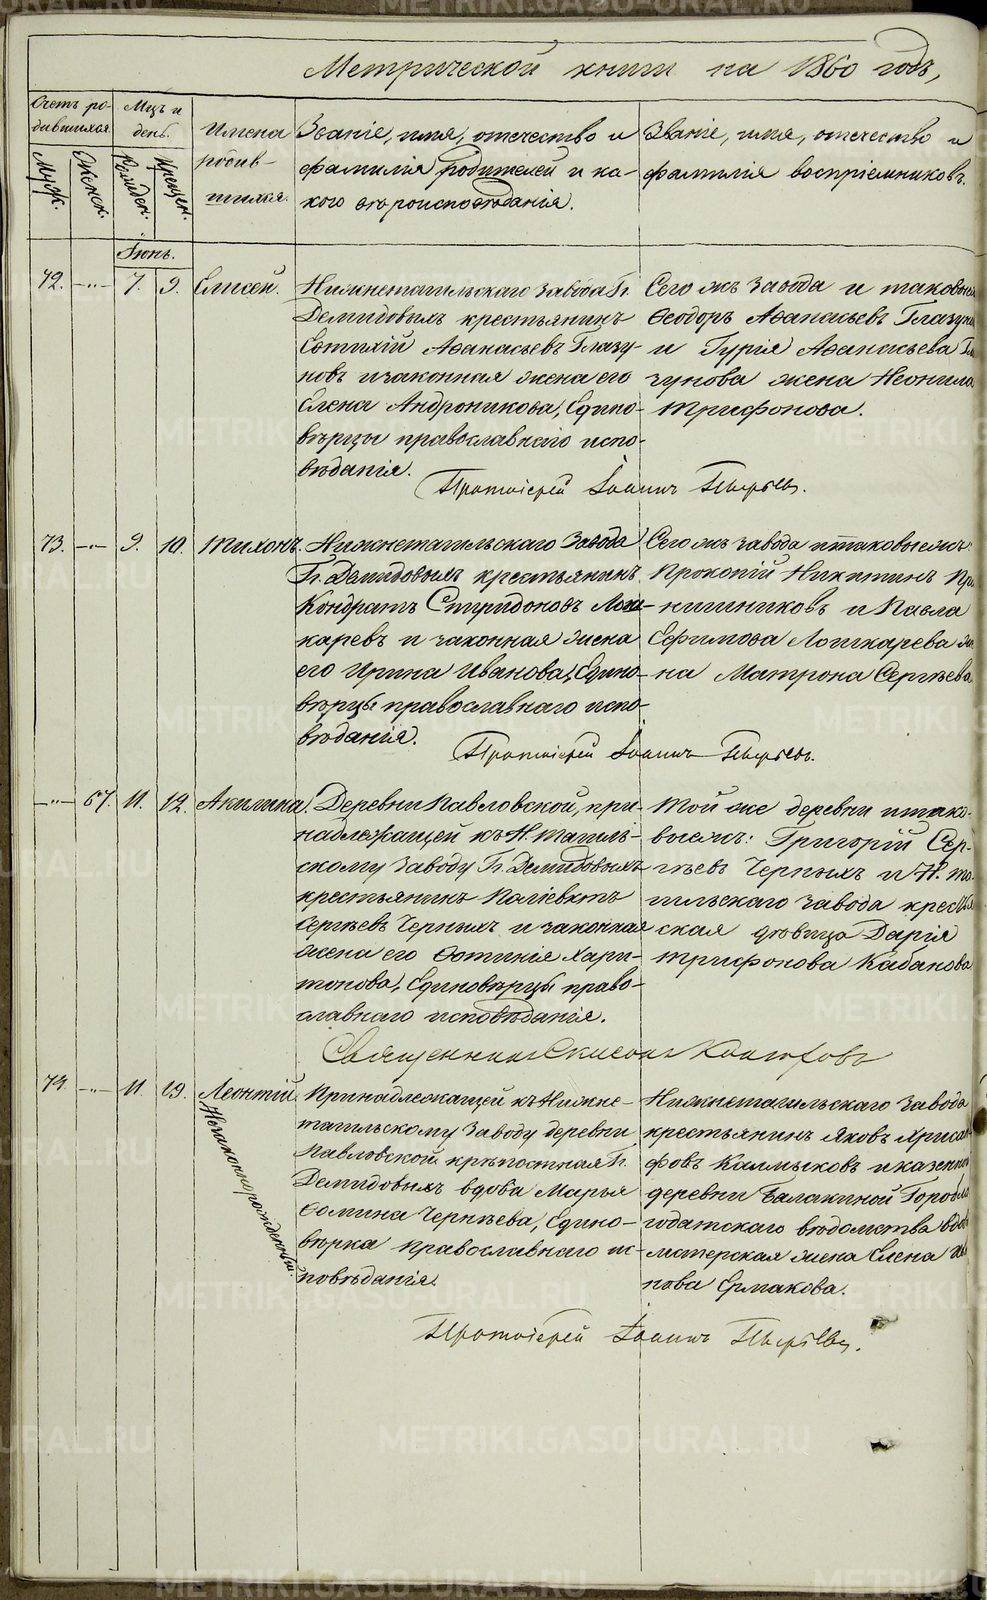 Метрической книги на 1860 годъ,
Счетъ родившихся.
Муж.
Женск.
Мцъ и день.
Рожден.
Крещен.
Имена родившихся.
Званіе, имя, отечество и
фамилія родителей и ка-
кого вѣроисповѣданія.
Званіе, имя, отечество и
фамилія воспріемниковъ.
Іюнь.
72. -"- 7. 9. Елисей.
Нижнетагильскаго завода Гг.
Демидовыхъ крестьянинъ
Евтихій Аѳанасьевъ Глазу-
новъ и законная жена его
Елена Андроникова, Едино-
вѣрцы православнаго испо-
вѣданія.
Сего жъ завода и таковые
Ѳеодоръ Аѳанасьевъ
и Гурія Аѳанасьева
зунова жена Неонила
Трифонова.
Протоіерей Іоаннъ
73. -"- 9. 10. Тихонъ.
Нижнетагильскаго завода
Гг. Демидовыхъ крестьянинъ
Кондратъ Спиридоновъ Лош-
каревъ и законная жена
его Ирина Иванова, Едино-
вѣрцы православнаго испо-
вѣданія.
Сего жъ завода и таковые жъ:
Прокопій Никитинъ
нишниковъ и Павла
Ефимова Лошкарева же-
на Матрона Сергѣева
Протоіерей Іоаннъ
-"- 67. 11. 12. Акилина.
Деревни Павловской, при-
надлежащей къ Н. Тагиль-
скому заводу Гг. Демидовыхъ
крестьянинъ Поліевктъ
Сергѣевъ Черныхъ и законная
жена его Фотинія Хари-
тонова, Единовѣрцы право-
славнаго исповѣданія.
Той же деревни и тако-
вые жъ: Григорій Сер-
гѣевъ Черныхъ и Н. Та-
гильскаго завода крестьян
ская дѣвица Дарія
Трифонова Кабанова
Священникъ
74. -"- 11. 19. Леонтій
Незаконнорожденный.
Принадлежащей къ Нижне-
тагильскому заводу деревни
Павловской крѣпостная Гг.
Демидовыхъ вдова Марья
Ѳомина Чернѣева, Едино-
вѣрка православнаго ис-
повѣданія.
Нижнетагильскаго завода
крестьянинъ Яковъ Хрисан-
фовъ Калмыковъ и казенной
деревни Балакиной Горобла-
годатскаго вѣдомства вдов
мастерская жена Елена
нова Ермакова.
Протоіерей Іоаннъ
METRIKI.GASO-URAL.RU